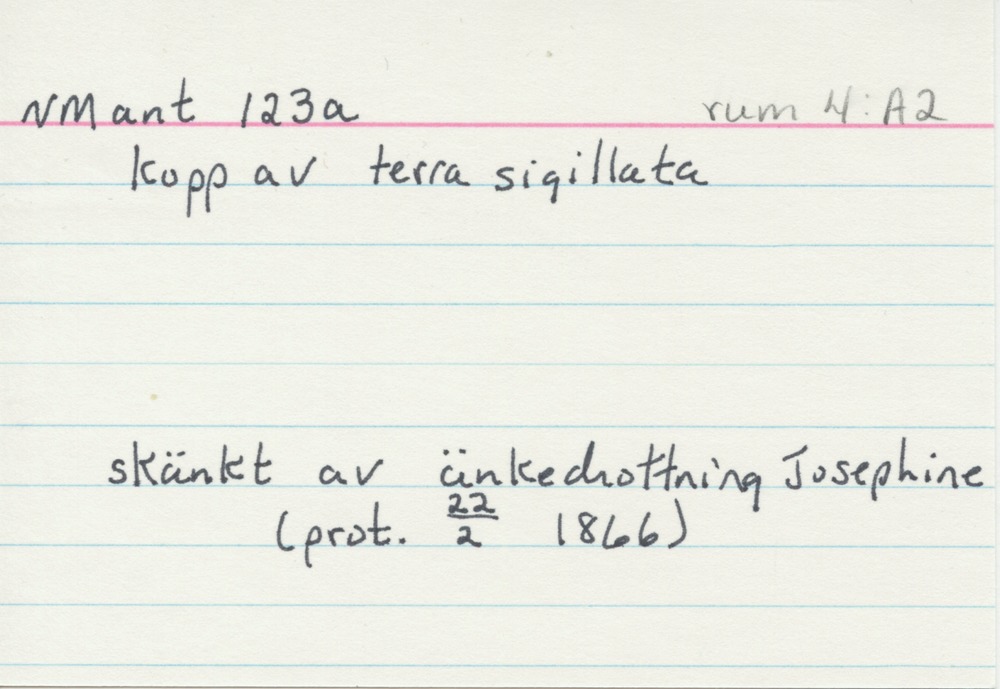 NM ant 123a rum 4:A2
kopp av terra sigillata
skänkt av änkedrottning Josephine
(prot. 22/2 1866)